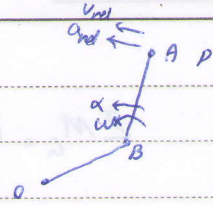 v_rel
a_rel
A P
α
ω
B
O